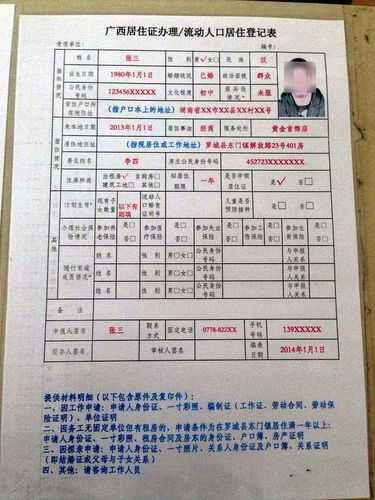 广西居住证办理/流动人口居住登记表
受理单位： 编号：
基本情况
姓名 张三 性别 男√女□ 民族 汉
出生日期 1980年1月1日 婚姻状况 已婚 政治面貌 群众
公民身份号码 123456XXXXX 文化程度 初中 服兵役情况* 未服
常住户口所在地住址 (指户口本上的地址) 湖南省XX市XX县XX村XX号
居住情况
来本地日期 2013年1月1日 居住事由 经商 服务处所 黄金首饰店
居住地住址 (指现居住或工作地址) 罗城县东门镇解放路23号401房
房主姓名 李四 房主公民身份号码 452723XXXXXXX.
住房种类 出租房√ 自购房□ 建筑工地□ 其他□ 拟居住期限 一年 是否申领居住证 是√ 否□
其他
计划生育* 现有子女数量 以下有则填 流动人口婚育证明号 儿童是否预防接种 是□ 否□
办理社会保险情况 参加养老保险 是□ 否□ 参加医疗保险 是□ 否□ 参加失业保险 是□ 否□ 参加工伤保险 是□ 否□ 参加生育保险 是□ 否□
随行家庭成员情况*
姓名 性别 男□女□ 公民身份号码 与申报人关系
姓名 性别 男□女□ 公民身份号码 与申报人关系
姓名 性别 男□女□ 公民身份号码 与申报人关系
备注
申报人签名 张三 联系方式 固定电话 0778-822XX 手机号码 139XXXXX
经办人签名 审核人签名 填表日期 2014年1月1日
提供材料明细（以下包含原件及复印件）：
一、因工作申请：申请人身份证、一寸彩照、编制证（工作证、劳动合同、劳动保
险证明）、单位证明
二、因务工无固定单位但有租房的，申请条件为在罗城县东门镇居住满一年以上：
申请人身份证、一寸彩照、租房合同及房东的身份证、户口簿、房产证明
三、因探亲申请：申请人身份证、一寸照片、关系人身份证及户口簿、关系证明
（即结婚证或父母与子女关系）
四、其他：请咨询工作人员